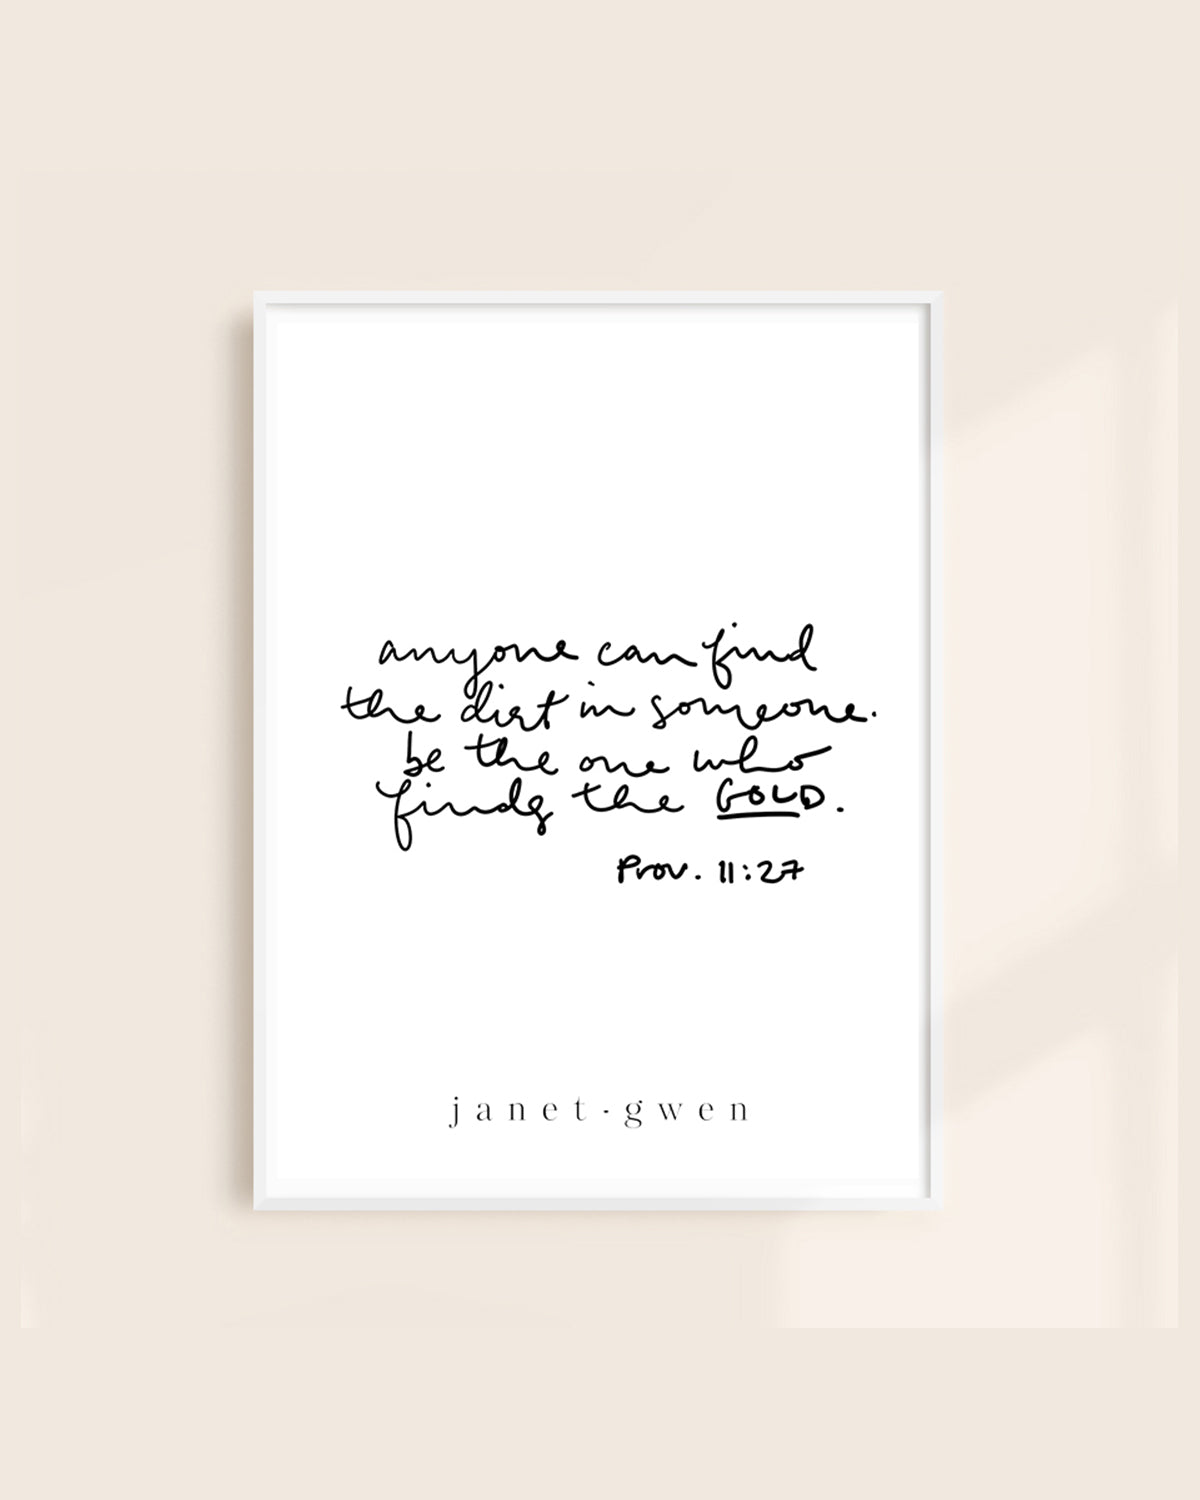 anyone can find
the dirt in someone.
be the one who
finds the GOLD.
Prov. 11:27
janet-gwen